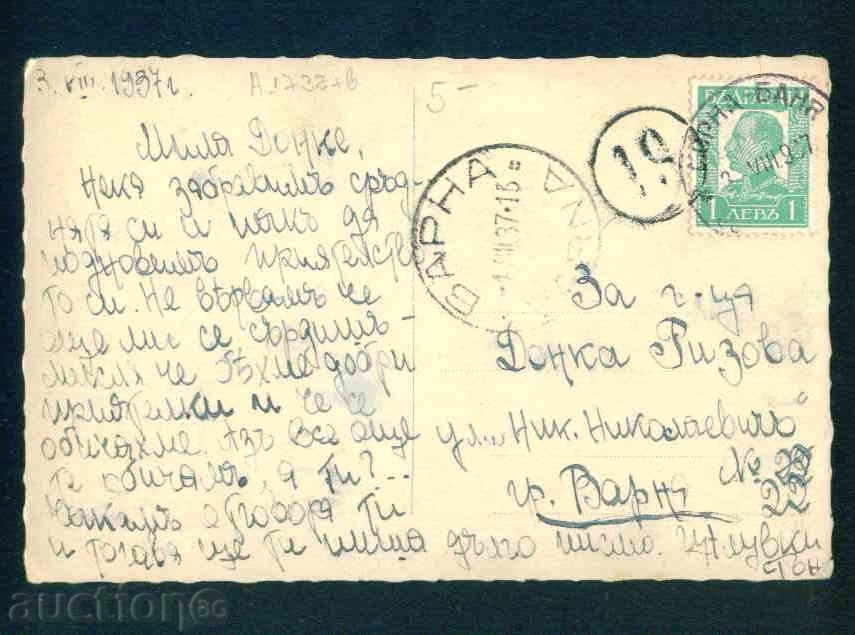 3. VIII. 1937 г.
А 1737+в
5-
Мила Донке,
Нека забравимъ сръд-
нята си и пакъ да
подновимъ приятелство-
то си. Не вѣрвамъ че
още ми се сърдишъ -
мисля че бѣхме добри
приятелки и че се
обичахме. Азъ все още
те обичамъ, а ти?...
Чакамъ отговора ти
и тогава ще ти пиша дълго писмо. Цѣлувки
ВАРНА
19
БАНЯ
БЪЛГАРИЯ
1 ЛЕВЪ 1
За г-ца
Донка Ризова
ул. „Ник. Николаевичъ“
№ 22
гр. Варна
auction68G